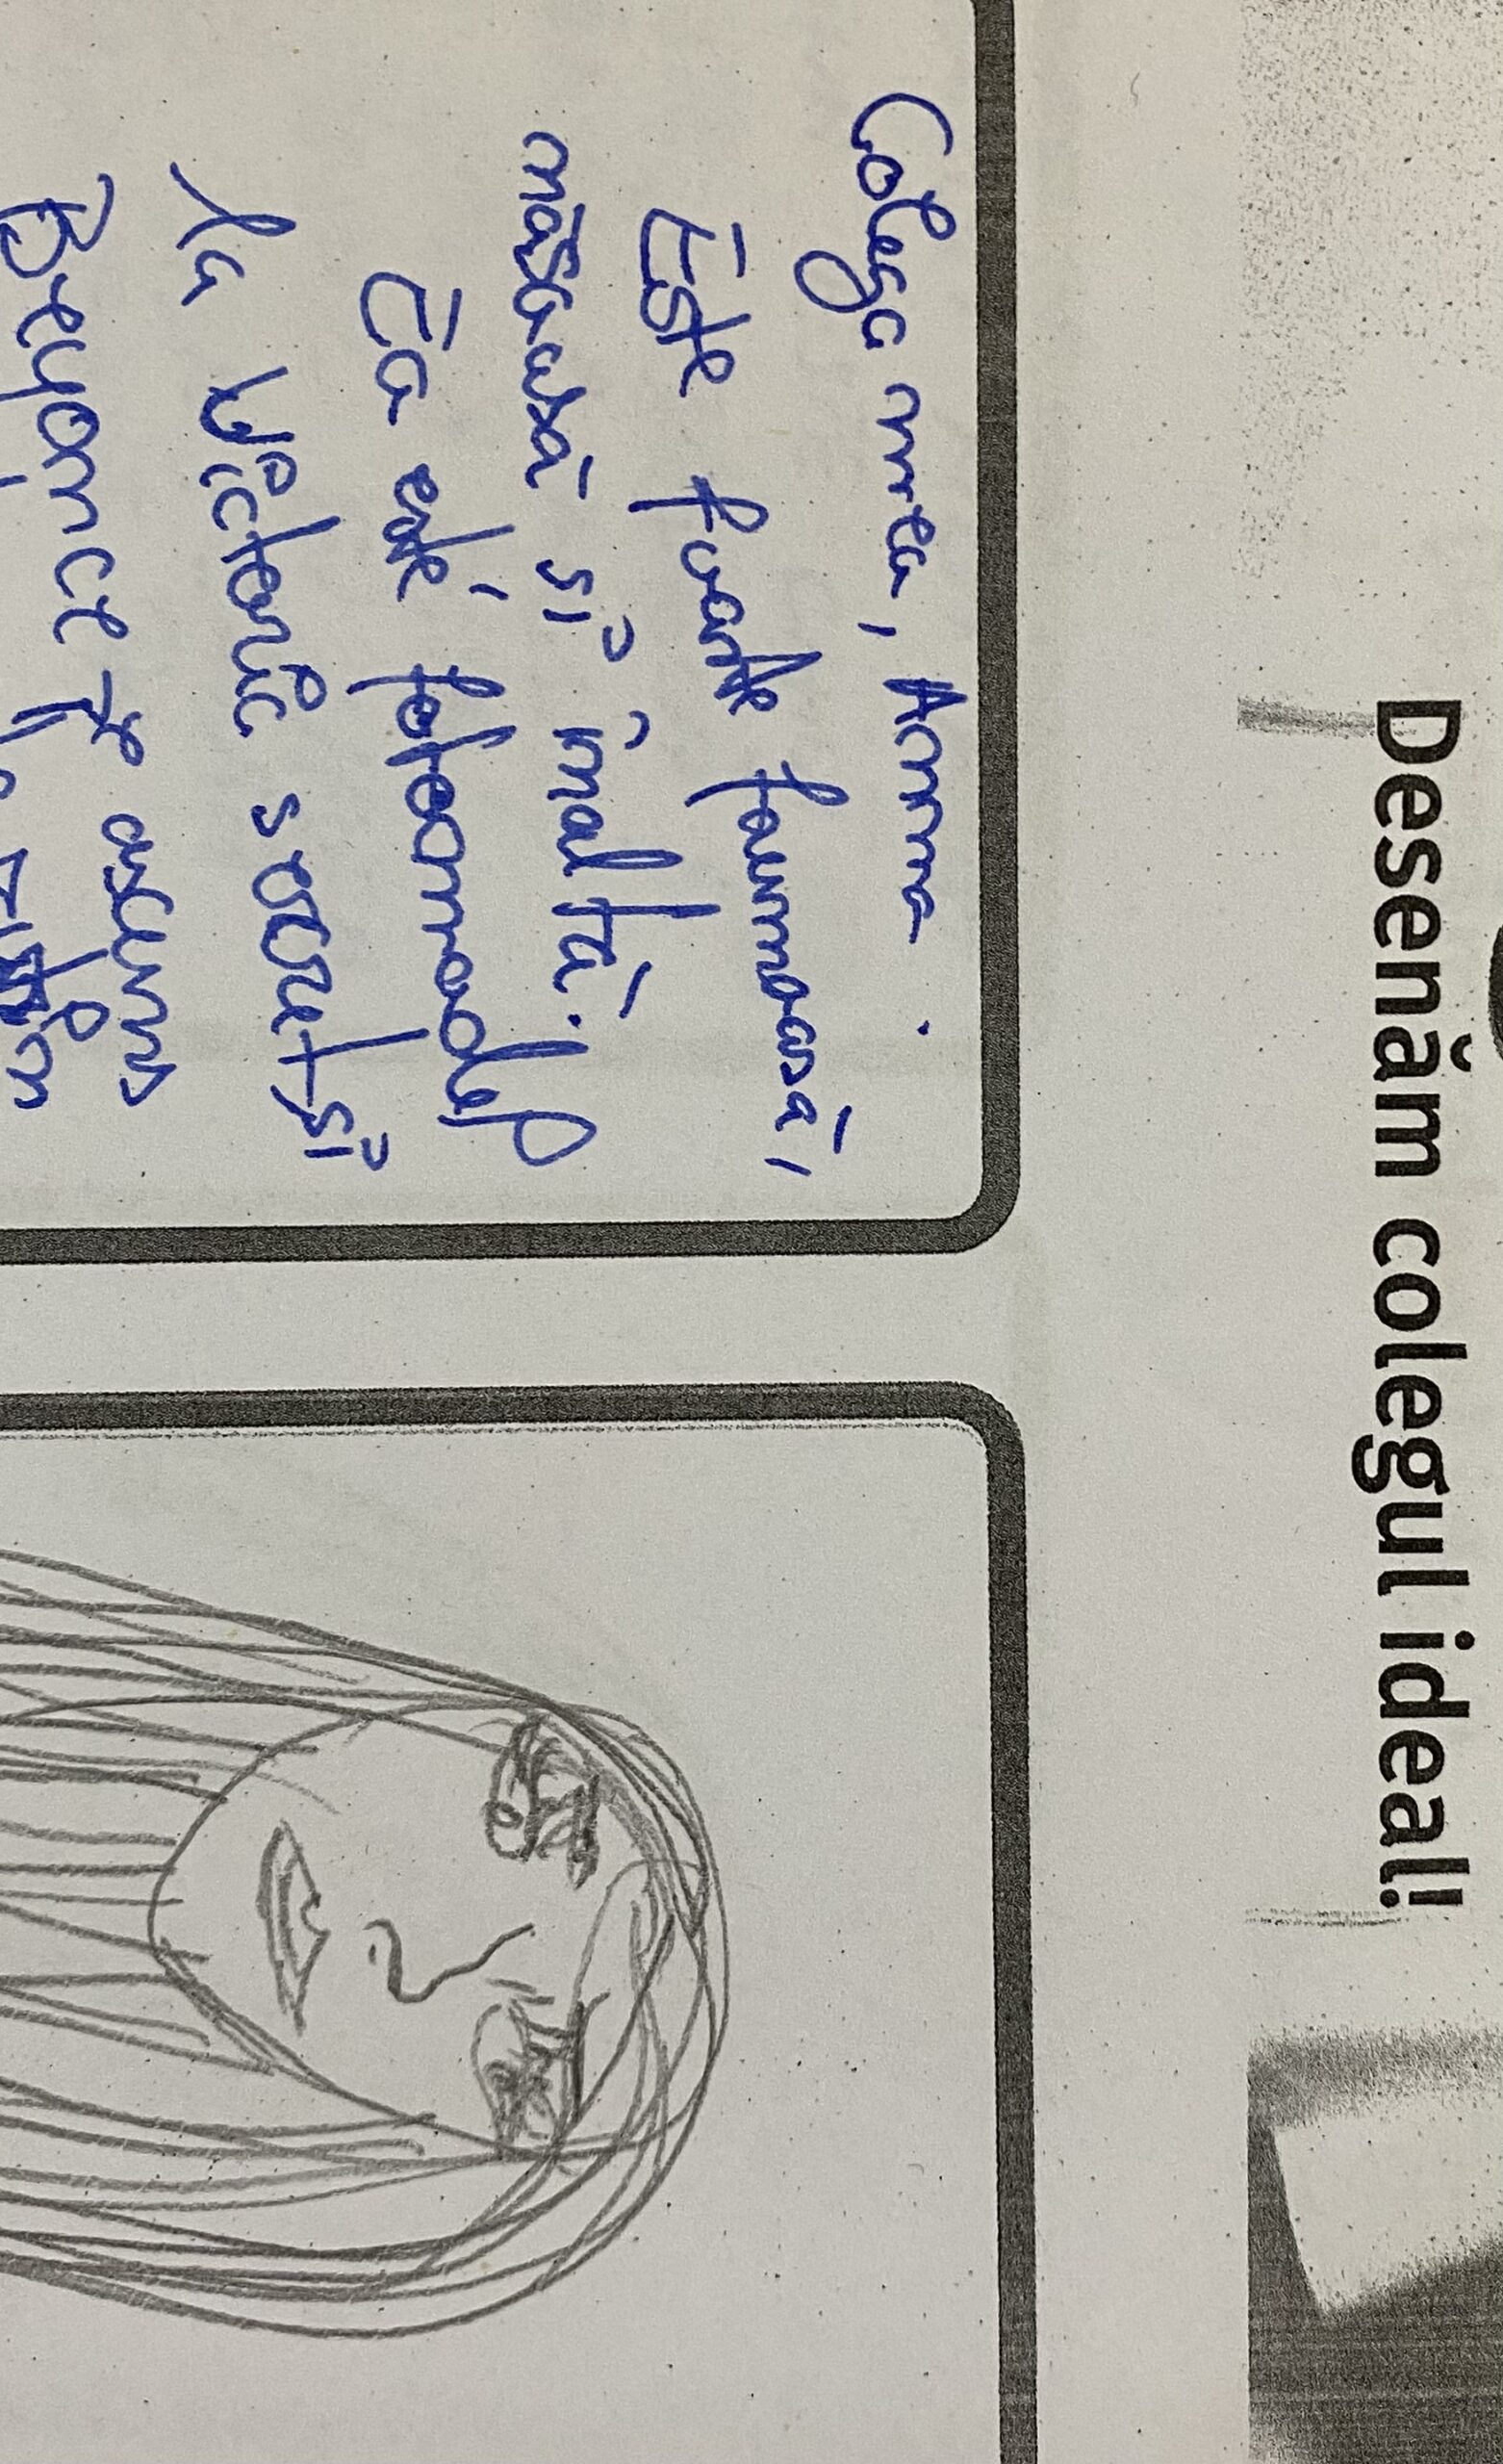 Desenăm colegul ideal!
Colega mea, Anna.
Este foarte frumoasă,
măsurată și înaltă.
Ea este fotomodel
la Victoria secret și
Beyonce